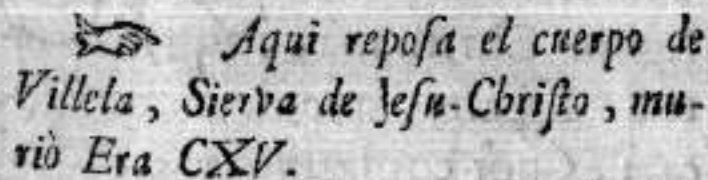 ☞ Aqui reposa el cuerpo de
Villela, Sierva de Jesu-Christo, mu-
riò Era CXV.